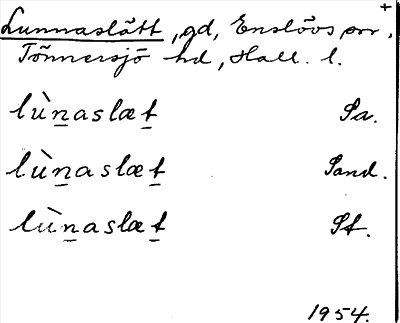 +
Lunnaslätt, gd, Enslövs sn,
Tönnersjö hd, Hall. l.
lùn̲aslæt̲ Sa.
lùn̲aslæt̲ Sand.
lùn̲aslæt̲ St.
1954.